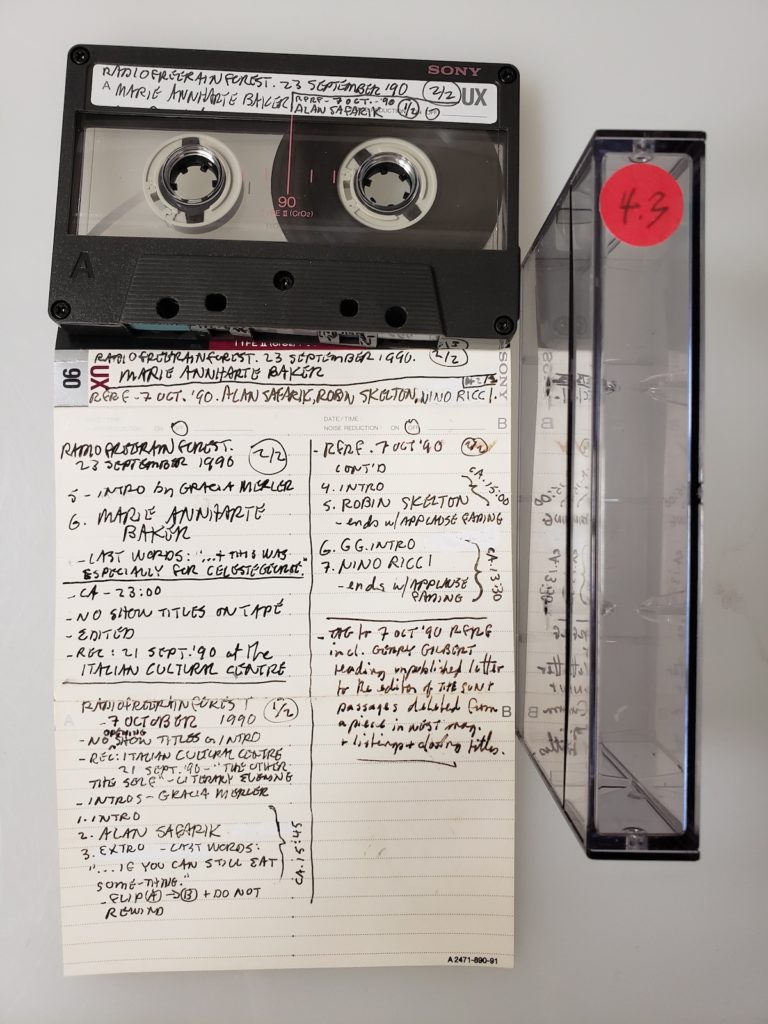 SONY
RADIOFREERAINFOREST. 23 SEPTEMBER '90 (2/2)
A MARIE ANNHARTE BAKER RFRF - 7 OCT. - '90 UX
ALAN SAFARIK (1/2)
90
TYPE II (CrO2)
A
4.3
RADIOFREERAINFOREST. 23 SEPTEMBER 1990. 2/2
UX 90
MARIE ANNHARTE BAKER
SONY
RFRF - 7 OCT. '90. ALAN SAFARIK, ROBIN SKELTON, NINO RICCI.
DATE/TIME
NOISE REDUCTION ON OFF
B
RADIOFREERAINFOREST. 2/2
23 SEPTEMBER 1990
5 - INTRO by GRACIA MERLER
6. MARIE ANNHARTE
BAKER
- LAST WORDS: "...+ THIS WAS
ESPECIALLY FOR CELESTE GEORGE."
- CA - 23:00
- NO SHOW TITLES ON TAPE
- EDITED
- REC: 21 SEPT. '90 at the
ITALIAN CULTURAL CENTRE
A
RADIOFREERAINFOREST 1/2
- 7 OCTOBER 1990
- NO OPENING SHOW TITLES or INTRO
- REC: ITALIAN CULTURAL CENTRE
21 SEPT. '90 - "THE OTHER
THE SELF" - LITERARY EVENING
- INTROS - GRACIA MERLER
1. INTRO
2. ALAN SAFARIK
3. EXTRO - LAST WORDS:
"... IF YOU CAN STILL EAT
SOME-THING."
CA. 15:45
- FLIP (A) → (B) + DO NOT
REWIND
- RFRF. 7 OCT '90 2/2
CONT'D
4. INTRO
5. ROBIN SKELTON
- ends w/ APPLAUSE FADING
CA. 15:00
6. GG. INTRO
7. NINO RICCI
- ends w/ APPLAUSE
FADING
CA. 13:30
- TAG to 7 OCT '90 RFRF
incl. GERRY GILBERT
reading unpublished letter
to the editor of THE SUN +
passages deleted from
a piece in WEST mag.
+ listings + closing titles.
B
A 2471-890-91